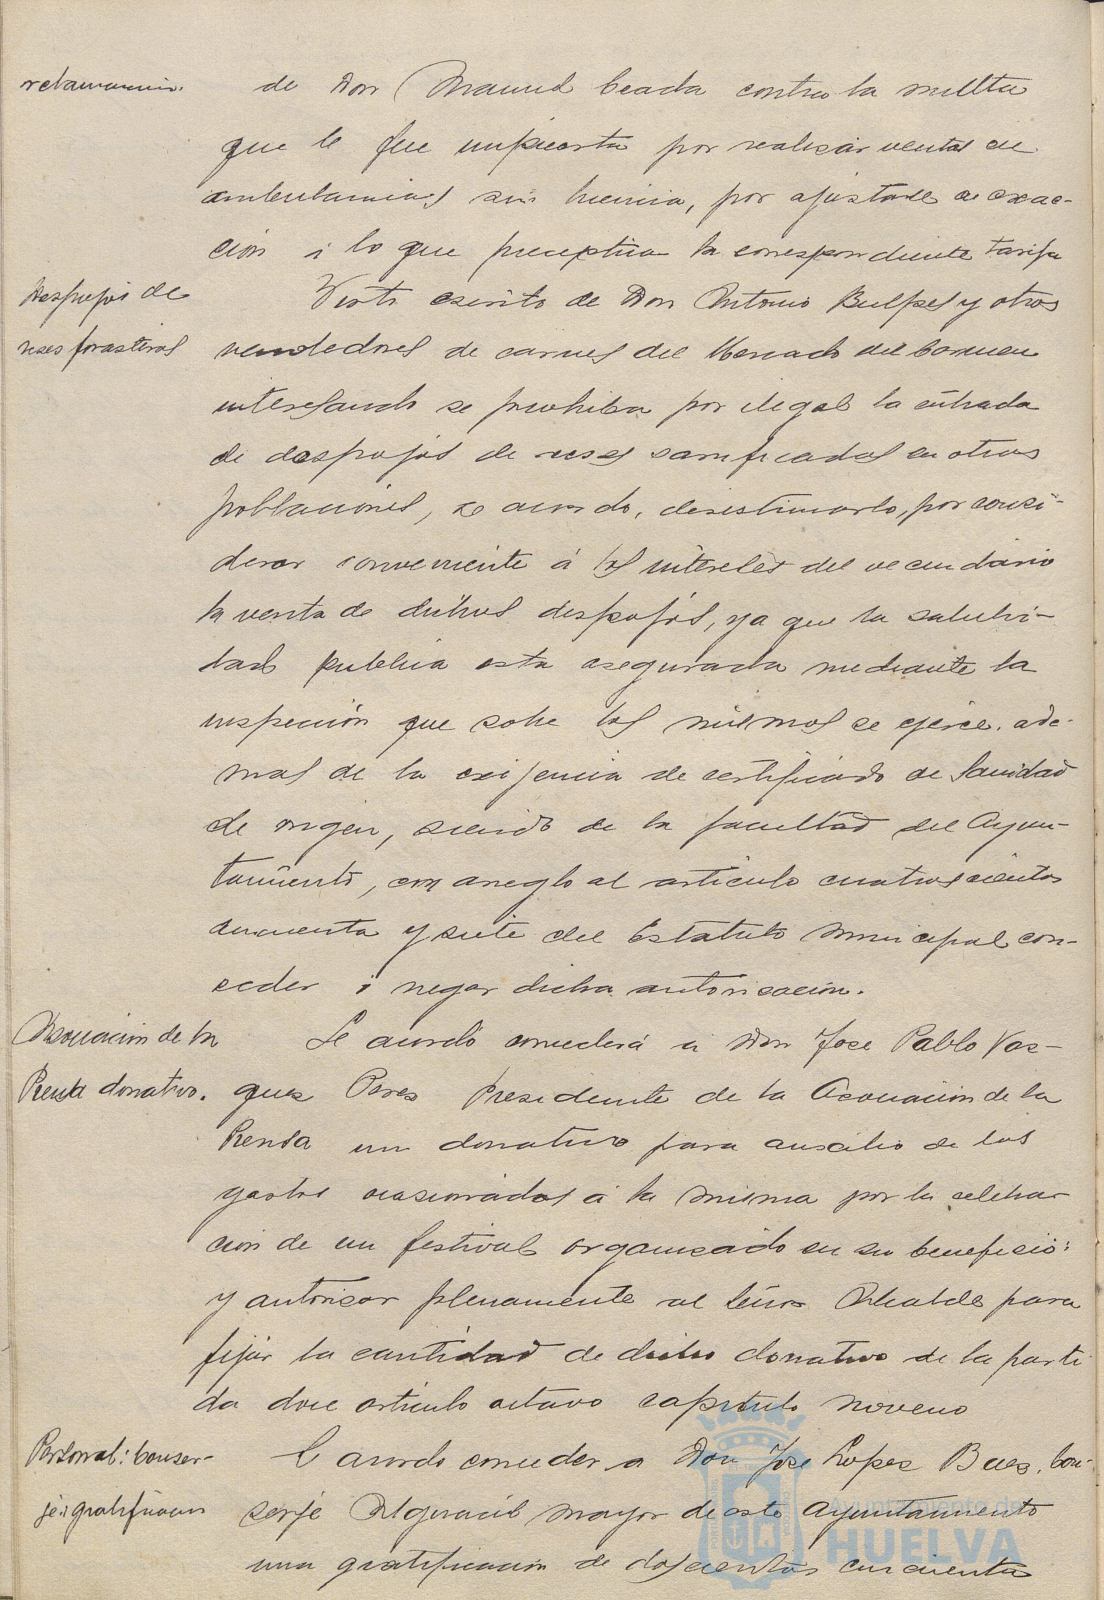 reclamacion. de Don Manuel Ceada contra la multa
que le fue impuesta por realizar ventas en
ambulancias sin licencia, por ajustarse a exac-
ción á lo que preceptua la correspondiente tarifa
Despojos de
reses forasteras
Visto escrito de Don Antonio Bulpes y otros
vendedores de carnes del Mercado del Carmen
interesando se prohiba por ilegal la entrada
de despojos de reses sacrificadas en otras
poblaciones, se acordo, desestimarlo, por consi-
derar conveniente á los intereses del vecindario
la venta de dichos despojos, ya que la salubri-
dad publica esta asegurada mediante la
inspección que sobre los mismos se ejerce, ade-
mas de la exijencia de certificado de Sanidad
de origen, siendo de la facultad del Ayun-
tamiento, con arreglo al articulo cuatroscientos
cincuenta y siete del Estatuto Municipal con-
ceder ó negar dicha autorización.
Asociación de la
Prensa donativo.
Se acordó concederá a Don Jose Pablo Vas-
ques Peres Presidente de la Asociación de la
Prensa un donativo para auxilio de los
gastos ocasionados á la misma por la celebra
ción de un festival organizado en su beneficio;
y autorizar plenamente al Señor Alcalde para
fijar la cantidad de dicho donativo de la parti
da doce articulo octavo capitulo noveno
Personal: Conser-
je: gratificacion
Se acordo conceder a Don Jose Lopez Baes, Con-
serje Alguacil mayor de este Ayuntamiento
una gratificación de doscientas cincuenta
Ayuntamiento de
HUELVA